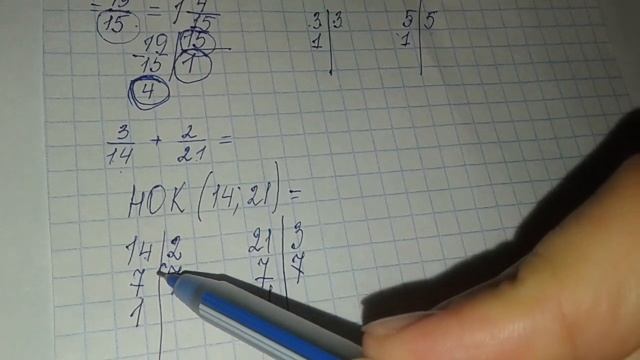 15 = 1 4/15
19 | 15
15 | 1
4
3 | 3
1
5 | 5
1
3/14 + 2/21 =
НОК (14; 21) =
14 | 2
7 | 7
1
21 | 3
7 | 7